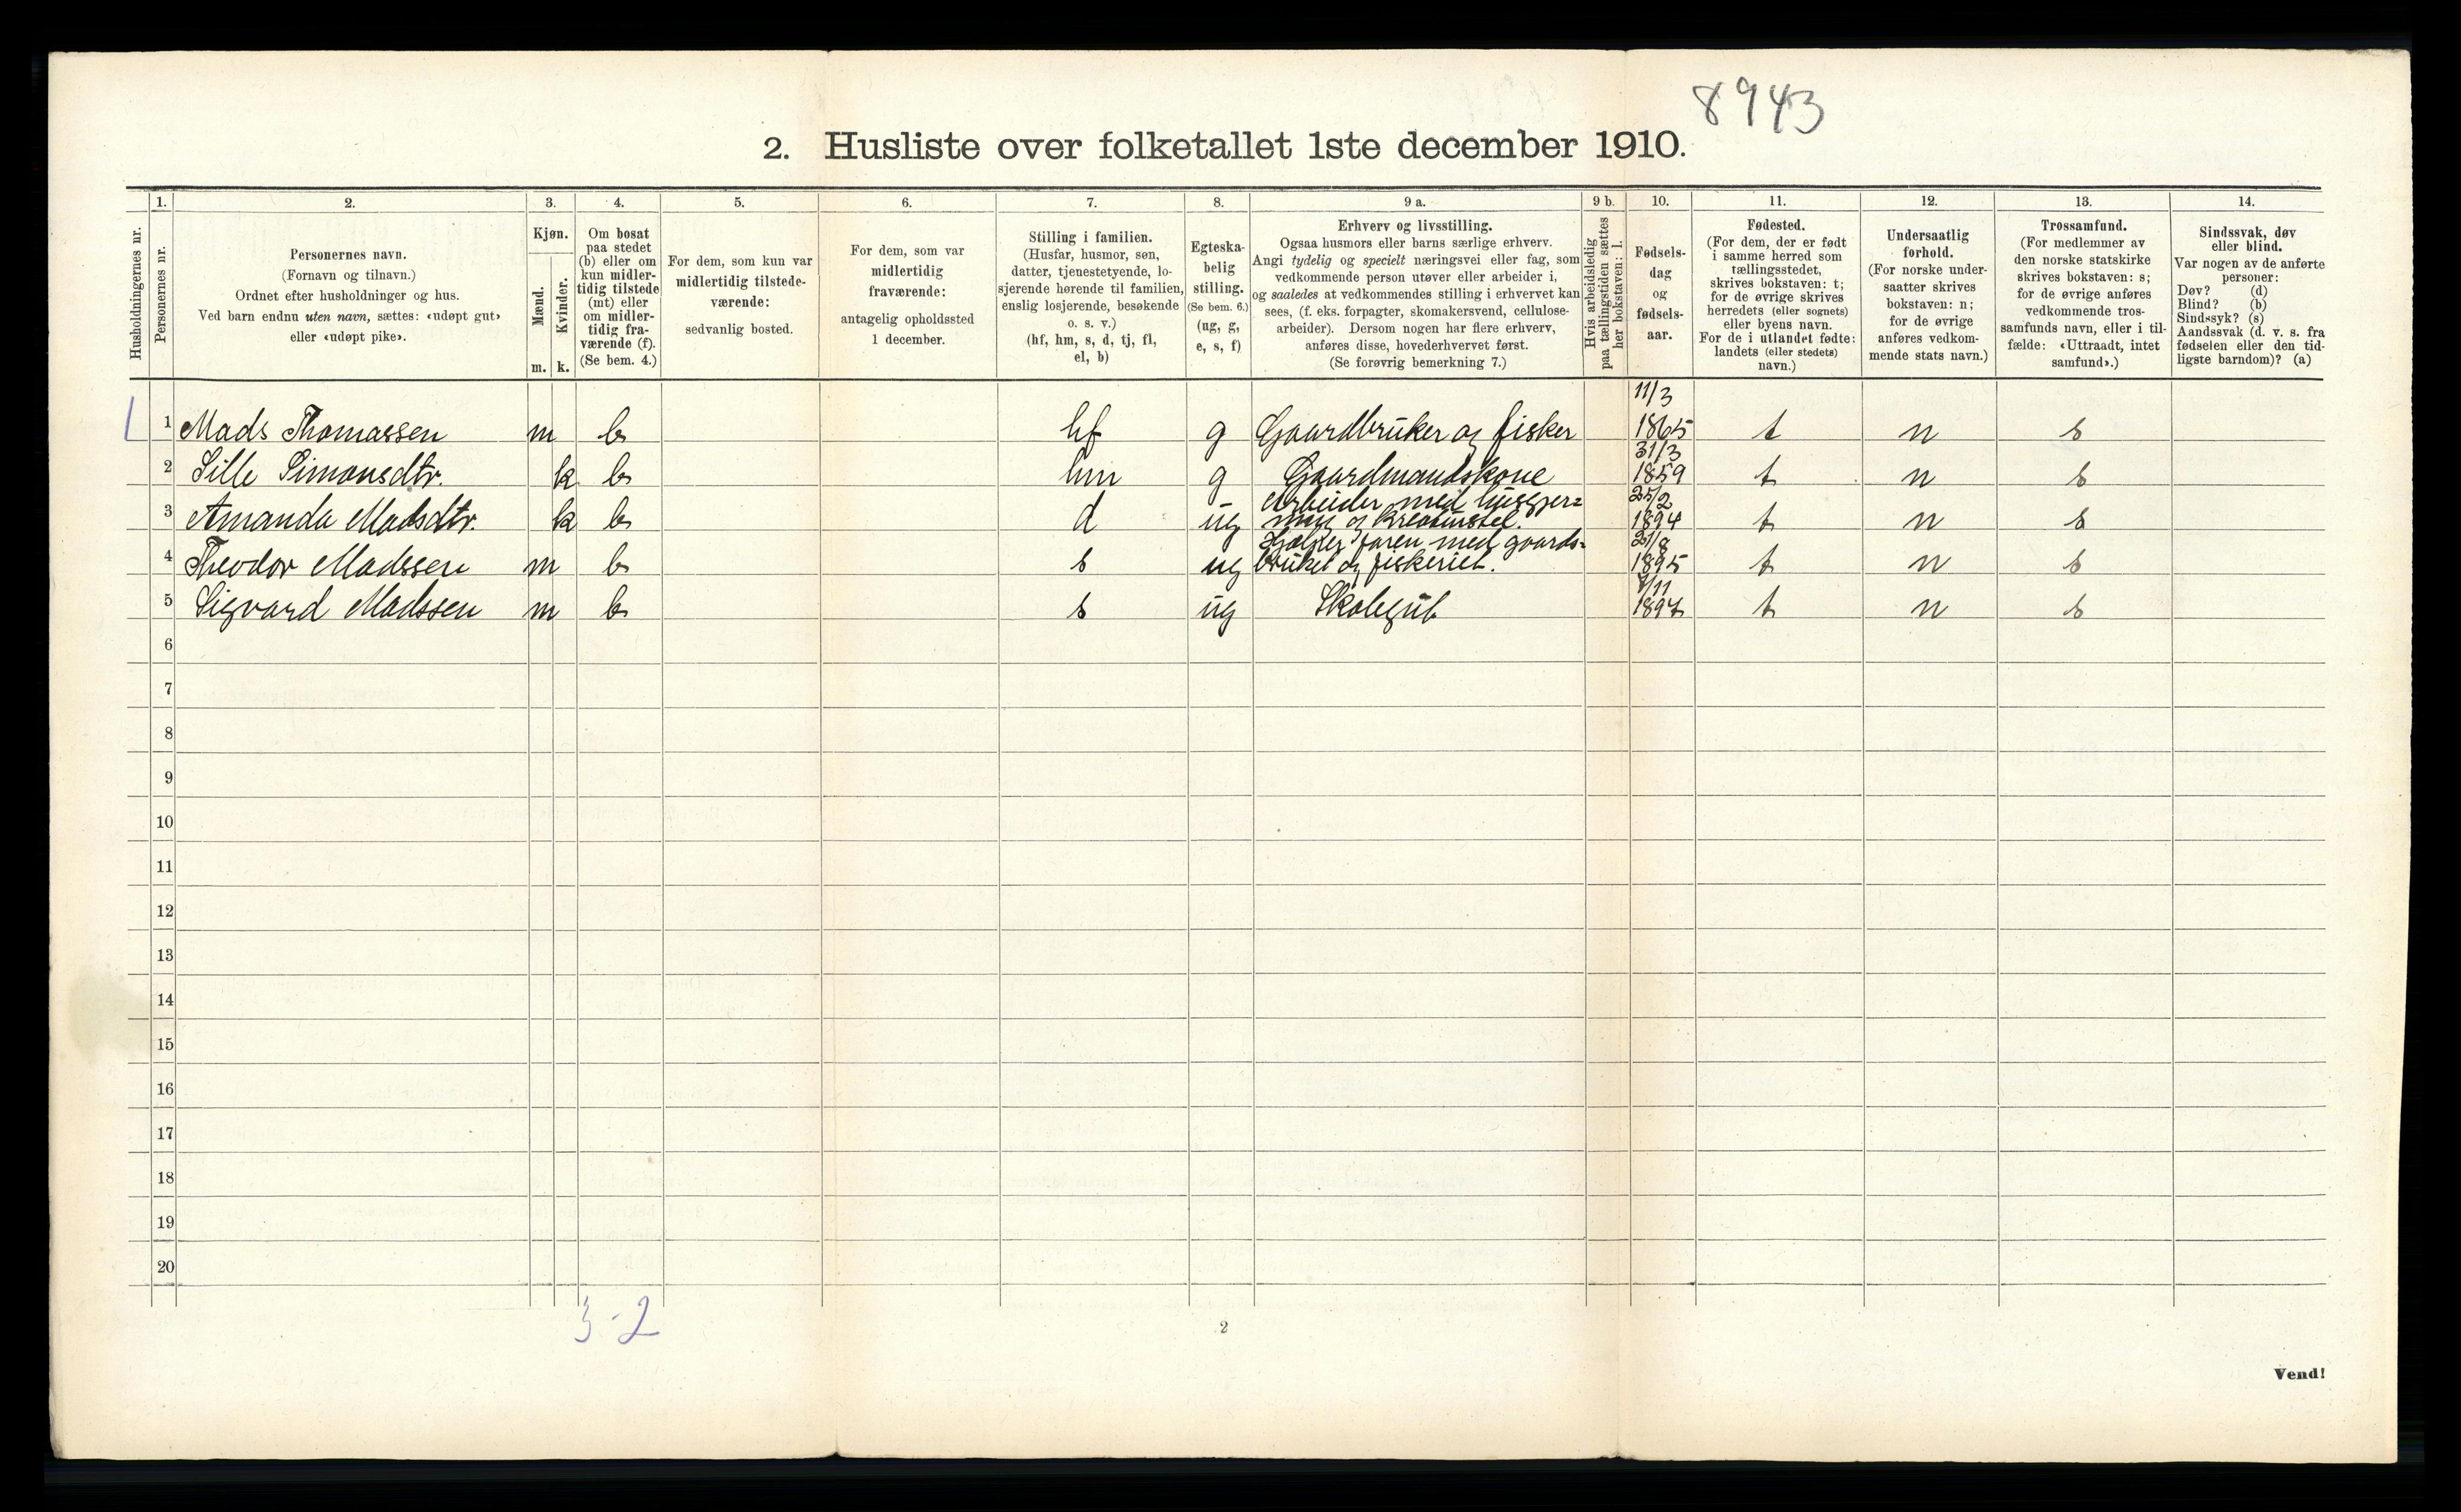 8943
2. Husliste over folketallet 1ste december 1910.
Husholdningernes nr.
1.
Personernes nr.
2.
Personernes navn.
(Fornavn og tilnavn.)
Ordnet efter husholdninger og hus.
Ved barn endnu uten navn, sættes: «udøpt gut»
eller «udøpt pike».
3.
Kjøn.
Mænd.
Kvinder.
m. k.
4.
Om bosat
paa stedet
(b) eller om
kun midler-
tidig tilstede
(mt) eller
om midler-
tidig fra-
værende (f).
(Se bem. 4.)
5.
For dem, som kun var
midlertidig tilstede-
værende:
sedvanlig bosted.
6.
For dem, som var
midlertidig
fraværende:
antagelig opholdssted
1 december.
7.
Stilling i familien.
(Husfar, husmor, søn,
datter, tjenestetyende, lo-
sjerende hørende til familien,
enslig losjerende, besøkende
o. s. v.)
(hf, hm, s, d, tj, fl,
el, b)
8.
Egteska-
belig
stilling.
(Se bem. 6.)
(ug, g,
e, s, f)
9 a.
Erhverv og livsstilling.
Ogsaa husmors eller barns særlige erhverv.
Angi tydelig og specielt næringsvei eller fag, som
vedkommende person utøver eller arbeider i,
og saaledes at vedkommendes stilling i erhvervet kan
sees, (f. eks. forpagter, skomakersvend, cellulose-
arbeider). Dersom nogen har flere erhverv,
anføres disse, hovederhvervet først.
(Se forøvrig bemerkning 7.)
9 b.
Hvis arbeidsledig
paa tællingstiden sættes
her bokstaven: l.
10.
Fødsels-
dag
og
fødsels-
aar.
11.
Fødested.
(For dem, der er født
i samme herred som
tællingsstedet,
skrives bokstaven: t;
for de øvrige skrives
herredets (eller sognets)
eller byens navn.
For de i utlandet fødte:
landets (eller stedets)
navn.)
12.
Undersaatlig
forhold.
(For norske under-
saatter skrives
bokstaven: n;
for de øvrige
anføres vedkom-
mende stats navn.)
13.
Trossamfund.
(For medlemmer av
den norske statskirke
skrives bokstaven: s;
for de øvrige anføres
vedkommende tros-
samfunds navn, eller i til-
fælde: «Uttraadt, intet
samfund».)
14.
Sindssvak, døv
eller blind.
Var nogen av de anførte
personer:
Døv? (d)
Blind? (b)
Sindssyk? (s)
Aandssvak (d. v. s. fra
fødselen eller den tid-
ligste barndom)? (a)
11/3
1 1 Mads Thomassen m b hf g Gaardbruker og fisker 1865 t n s
31/3
2 Sille Simonsdtr. k b hm g Gaardmandskone 1859 t n s
Arbeider med husgjer= 25/2
3 Amanda Madsdtr. k b d ug ning og kreaturstel. 1894 t n s
Hjælper faren med gaards=
4 Theodor Madssen m b s ug bruket og fiskeriet. 1895 t n s
7/11
5 Sigvard Madssen m b s ug Skolegut 1897 t n s
6
7
8
9
10
11
12
13
14
15
16
17
18
19
20
3-2
2
Vend!